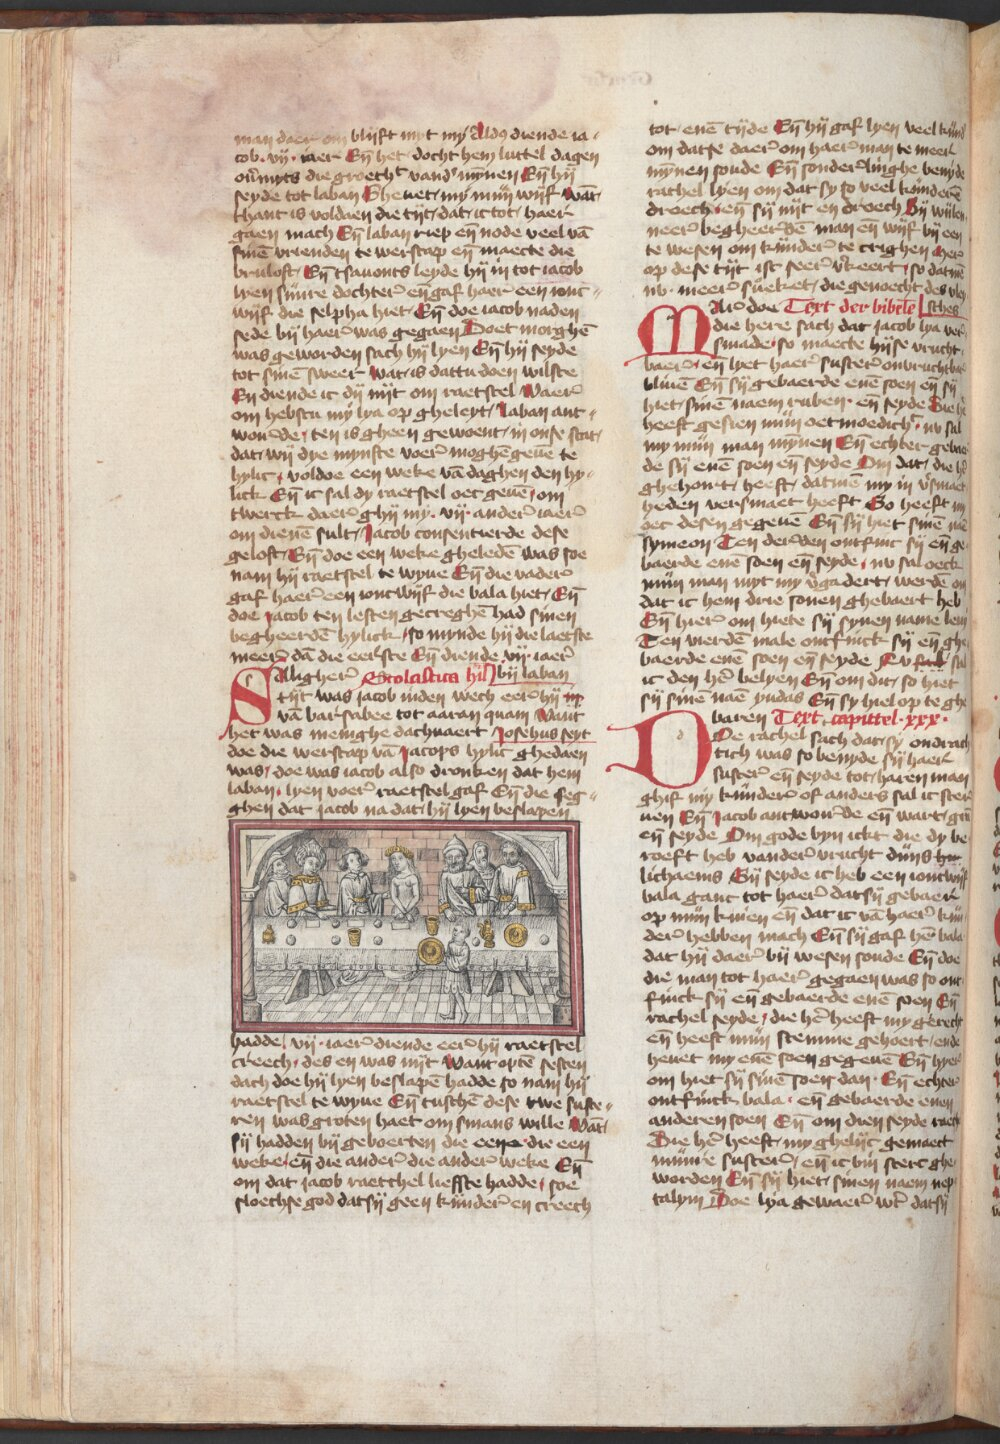 man daer om blijft myt my Aldus diende ia
cob . vij . iaer Eñ het docht hem luttel dagen
die groecheit vander mynen Eñ hij
seyde tot laban Gheuet my mijn wijf Want
thant is voldaen die tijt dat ic tot haer
gaen mach Eñ laban riep eñ node veel vā
sinē vrienden te werscap eñ maecte die
bruloft Eñ tsauonts leyde hij in tot iacob
lyen sijnre dochter eñ gaf haer een ionc
wijf die selpha hiet Eñ doe iacob naden
sede bij haer was gegaen Doet morghē
was geworden sach hij lyen Eñ hij seyde
tot sinē sweer wat is dattu doen wilste
En diende ic dij nijt om raetstel Waer
om hebstu my lya op gheleyt Laban ant
worde ten is gheen gewoent in onse stat
dat wij dye mynste voer moghē geue te
hylic voldoe een weke vā daghen den hy
lick Eñ ic sal dy raetstel oec geuē om
twerck daer ghij my . vij . ander iaer
om dienē sult Jacob consentierde dese
geloft Eñ doe een weke gheledē was soe
nam hij raetstel te wyue Eñ die vader
gaf haer een ioncwijf die bala hiet Eñ
doe jacob ten lesten gecreghē had sinen
begheerdē hylick so mynde hij die laetste
meer dā die eerste Eñ diende vij iaer
Salligher Scolastica his bij laban
tijt was jacob inden wech eer hij in
vā barsabee tot aaran quam Want
het was menighe dachuaert Josehus seyt
doe die werscap vā Jacops hylic ghedaen
was doe was iacob also dronken dat hem
laban lyen voer raetstel gaf Eñ die seg
ghen dat jacob na dat hij lyen beslapen
hadde vij . iaer diende eer hij raetstel
creech des en was nijt Want optē sesten
dach doe hij lyen beslapē hadde so nam hij
raetstel te wyue Eñ tuschē dese twe suste
ren was groten haet om smans wille Want
sij hadden bij geboerten die eene die een
weke eñ die ander die ander weke Eñ
om dat jacob raetchel liefste hadde soe
sloechse god dat sij geen kinder en creech
tot enē tijde Eñ hij gaf lyen veel kind
om datse daer om haer man te meer
mynen soude Eñ sonderlinghe benijde
rachel lyen om dat sy so veel kinderē
droech eñ sij nijt en droech Bij wilen
neer begheerdē man eñ wijf bij een
te wesen om kinder te crighen Mer
op dese tijt ist seer vkeert so datmē
nv meer sueket die genoecht des vley
Mer doe Text der bibele sches
die here sach dat jacob lya ver
smade so maecte hijse vrucht
baer eñ lyet haer suster onvruchtbaer
bliuē Eñ sij gebaerde enē soen eñ sij
hiet sinē naem ruben . eñ seyde Die hē
heeft gesien mijn oetmoedich nv sal
my mijn man mynen Eñ echter gebaer
de sij enē soen eñ seyde Om dat die hē
ghehoirt heeft datmē my in vsmaet
heden versmaet heeft So heeft my
oec desen gegeuē Eñ sij hiet sinē naē
symeon Ten derden ontfinc sij eñ ge
baerde enē soen eñ seyde nv sal oeck
mijn man myt my vgadert werdē om
dat ic hem drie sonen ghebaert heb
Eñ hier om hiete sij synen name leui
Ten vierdē male ontfinck sij eñ ghe
baerde enē soen eñ seyde Nv sal
ic den hē belyen Eñ om dit so hiet
sij sinē naē yudas Eñ sy hiel op te ghe
baren Text capittel . xxx .
Doe rachel sach dat sy ondrach
tich was so benyde sij haer
suster eñ seyde tot haren man
ghif my kinder of anders sal ic ster
uen Eñ Jacob antworde eñ wart grā
eñ seyde Om gode byn ickt die dy be
roeft heb vander vrucht dijns
lichaems Sij seyde ic heb een ioncwijf
bala ganc tot haer dat sij gebaer
op mijn knien eñ dat ic vā haer kin
der hebben mach Eñ sij gaf hē bala
dat hij daer bij wesen soude Eñ doe
die man tot haer gegaen was so ont
finck sij eñ gebaerde enē soen Eñ
rachel seyde die hē heeft my gerecht
eñ heeft mijn stemme gehoert ende
heuet my enē soen gegeuē Eñ hyer
om hiet sij sinē soen dan . Eñ echter
ontfinck bala . eñ gebaerde enen
anderen soen Eñ om dien seyde rach
Die hē heeft my ghelijc gemaect
mijnre suster eñ ic bin sterc ghe
worden Eñ sij hiet sinen naem nep
talym Doe lya gewaer wt dat sij